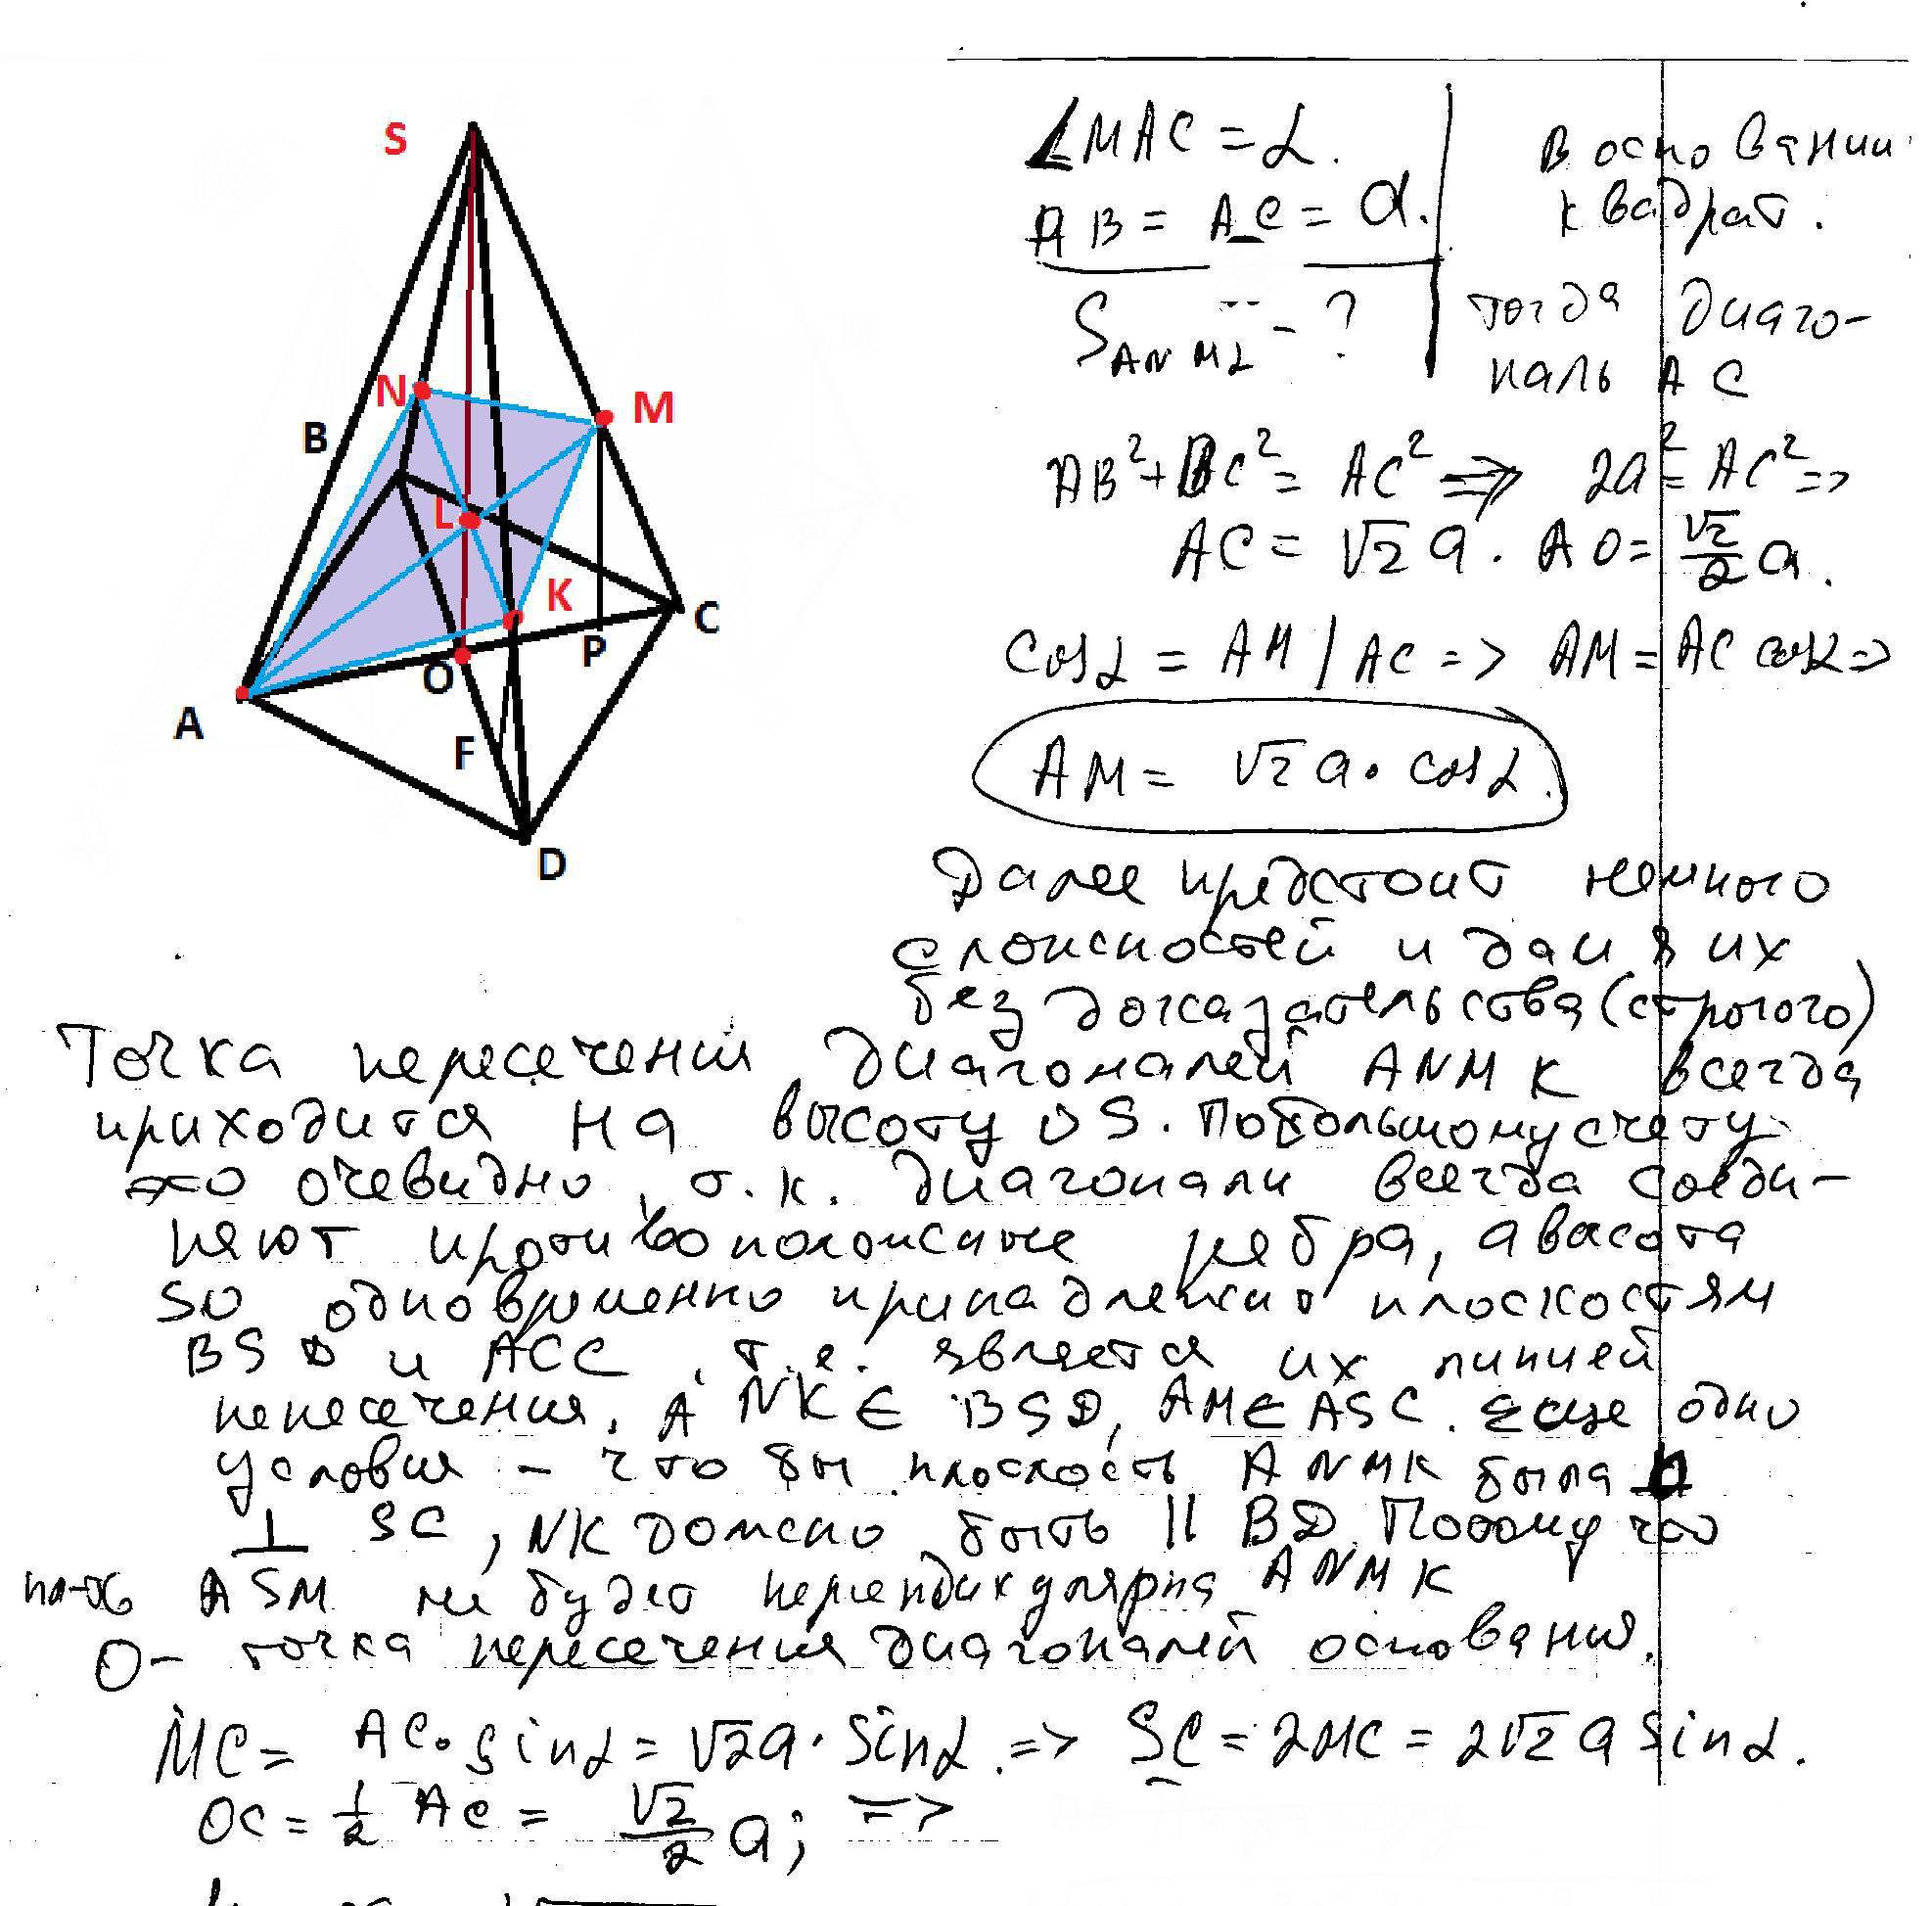 S
N
M
B
L
K
C
P
O
A
F
D
∠MAC = α.
AB = AC = a.
S ANML - ?
в основании
квадрат.
тогда диаго-
наль AC
AB² + BC² = AC² => 2a² = AC² =>
AC = √2 a. AO = √2/2 a.
cosα = AM / AC => AM = AC cosα =>
AM = √2 a · cosα.
Далее предстоит немного
сложностей и дам я их
без доказательства (строгого)
Точка пересечения диагоналей ANMK всегда
приходится на высоту OS. По большому счету
это очевидно, т.к. диагонали всегда соеди-
няют противоположные ребра, а васота
SO одновременно принадлежит плоскостям
BSD и ACC, т.е. является их линией
пепесечения. А NK ∈ BSD, AM ∈ ASC. Еще одно
условия - что бы плоскость ANMK была
⊥ SC, NK должно быть || BD. Потому что
пл-ть ASM не будет перпендикулярна ANMK
O - точка пересечения диагоналей основания.
MC = AC · sinα = √2 a · sinα. => SC = 2MC = 2√2 a sinα.
OC = 1/2 AC = √2/2 a; =>